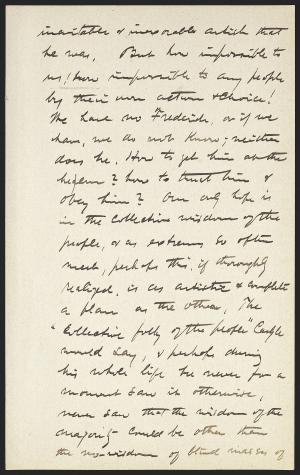 inevitable & inexorable artist that
he was. But how impossible to
us! How impossible to any people
by their own action & choice!
We have no Frederick, or if we
have, we do not know; neither
does he. How to get him at the
helm? how to trust him &
obey him? Our only hope is
in the collective wisdom of the
people, & as extremes so often
meet, perhaps this, if thoroughly
realized, is as artistic & complete
a plan as the other. The
"Collective folly of the people" Carlyle
would say, & perhaps during
his whole life he never for a
moment saw it otherwise,
never saw that the wisdom of the
majority could be other than
the no-wisdom of blind masses of